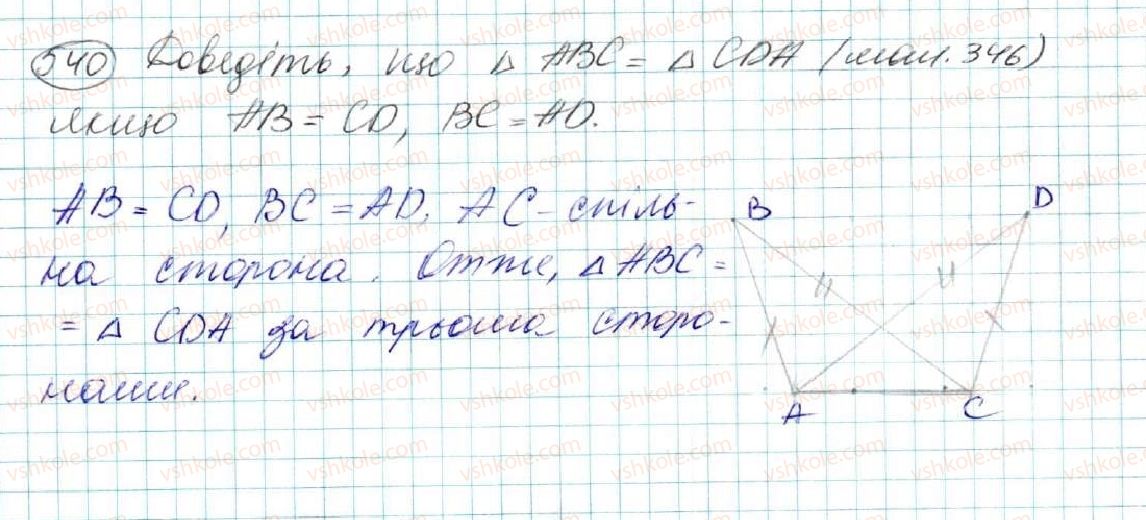 540 Доведіть, що △ ABC = △ CDA (мал. 346)
якщо AB = CD, BC = AD.
AB = CD, BC = AD, AC - спіль-
на сторона. Отже, △ ABC =
= △ CDA за трьома сторо-
нами.
B
D
A
C
vshkole.com